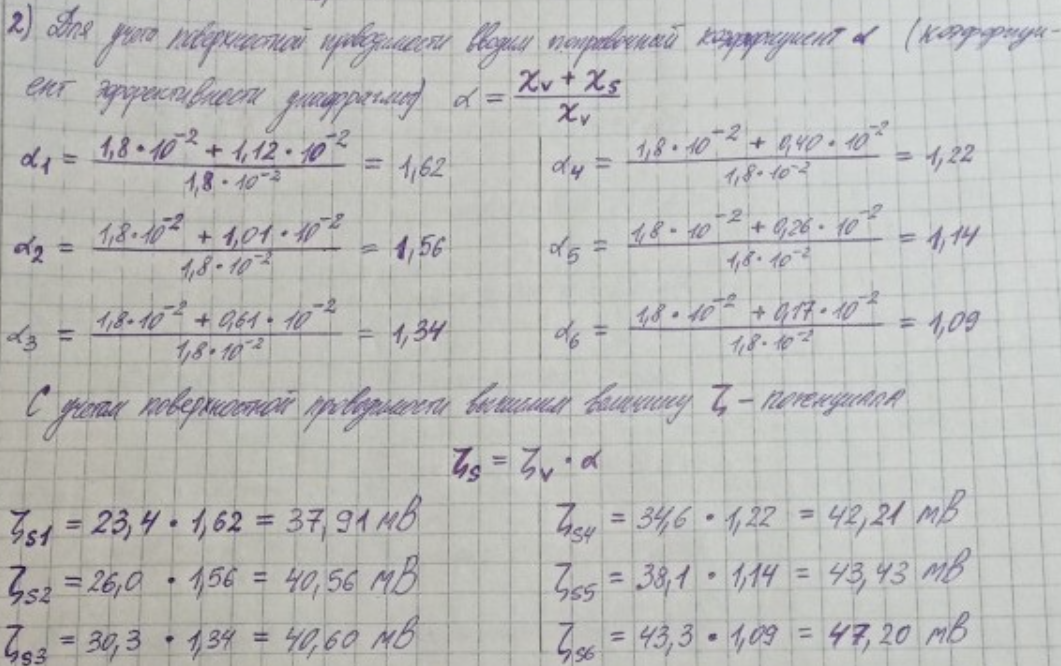 2) Для учета поверхностной проводимости вводим поправочный коэффициент α (коэффици-
ент эффективности диафрагмы) α = (χv + χs) / χv
α1 = (1,8·10^-2 + 1,12·10^-2) / (1,8·10^-2) = 1,62    α4 = (1,8·10^-2 + 0,40·10^-2) / (1,8·10^-2) = 1,22
α2 = (1,8·10^-2 + 1,01·10^-2) / (1,8·10^-2) = 1,56    α5 = (1,8·10^-2 + 0,26·10^-2) / (1,8·10^-2) = 1,14
α3 = (1,8·10^-2 + 0,61·10^-2) / (1,8·10^-2) = 1,34    α6 = (1,8·10^-2 + 0,17·10^-2) / (1,8·10^-2) = 1,09
С учетом поверхностной проводимости вычислим величину ζ – потенциала
ζs = ζv · α
ζs1 = 23,4 · 1,62 = 37,91 мВ    ζs4 = 34,6 · 1,22 = 42,21 мВ
ζs2 = 26,0 · 1,56 = 40,56 мВ    ζs5 = 38,1 · 1,14 = 43,43 мВ
ζs3 = 30,3 · 1,34 = 40,60 мВ    ζs6 = 43,3 · 1,09 = 47,20 мВ